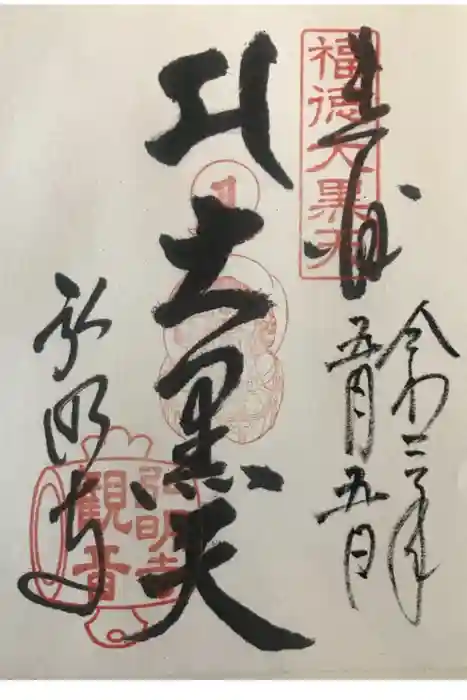 奉拝
福徳大黒天
令和三年
五月五日
大黒天
弘明寺
弘明寺
観音